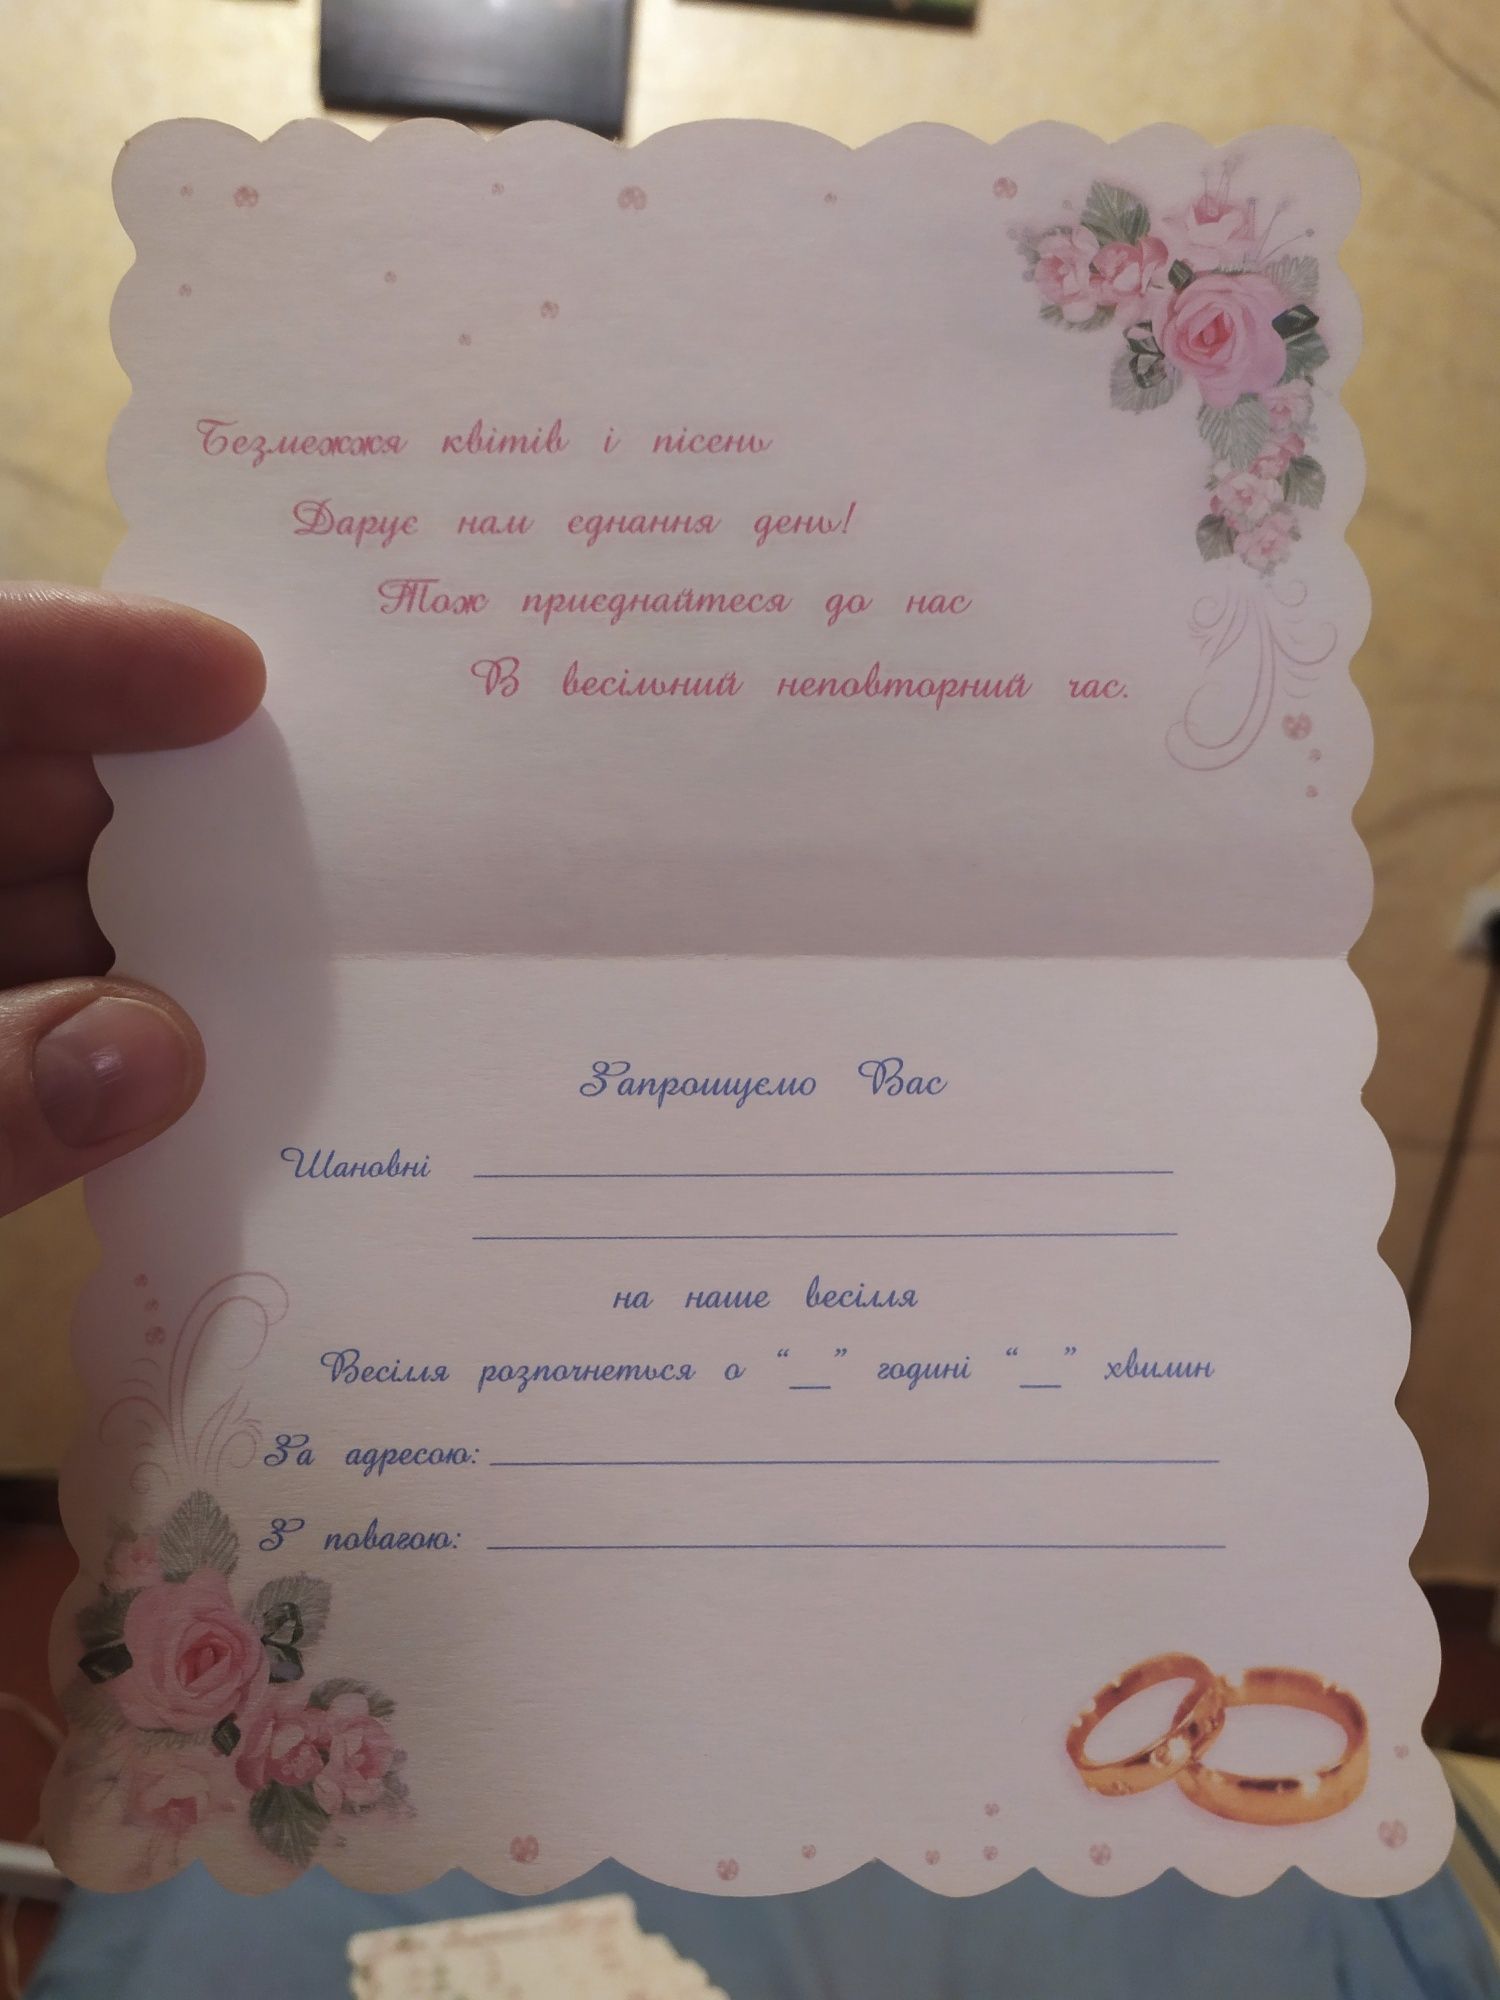 Безмежжя квітів і пісень
Дарує нам єднання день!
Тож приєднайтеся до нас
В весільний неповторний час.
Запрошуємо Вас
Шановні
на наше весілля
Весілля розпочнеться о “__” годині “__” хвилин
За адресою:
З повагою: